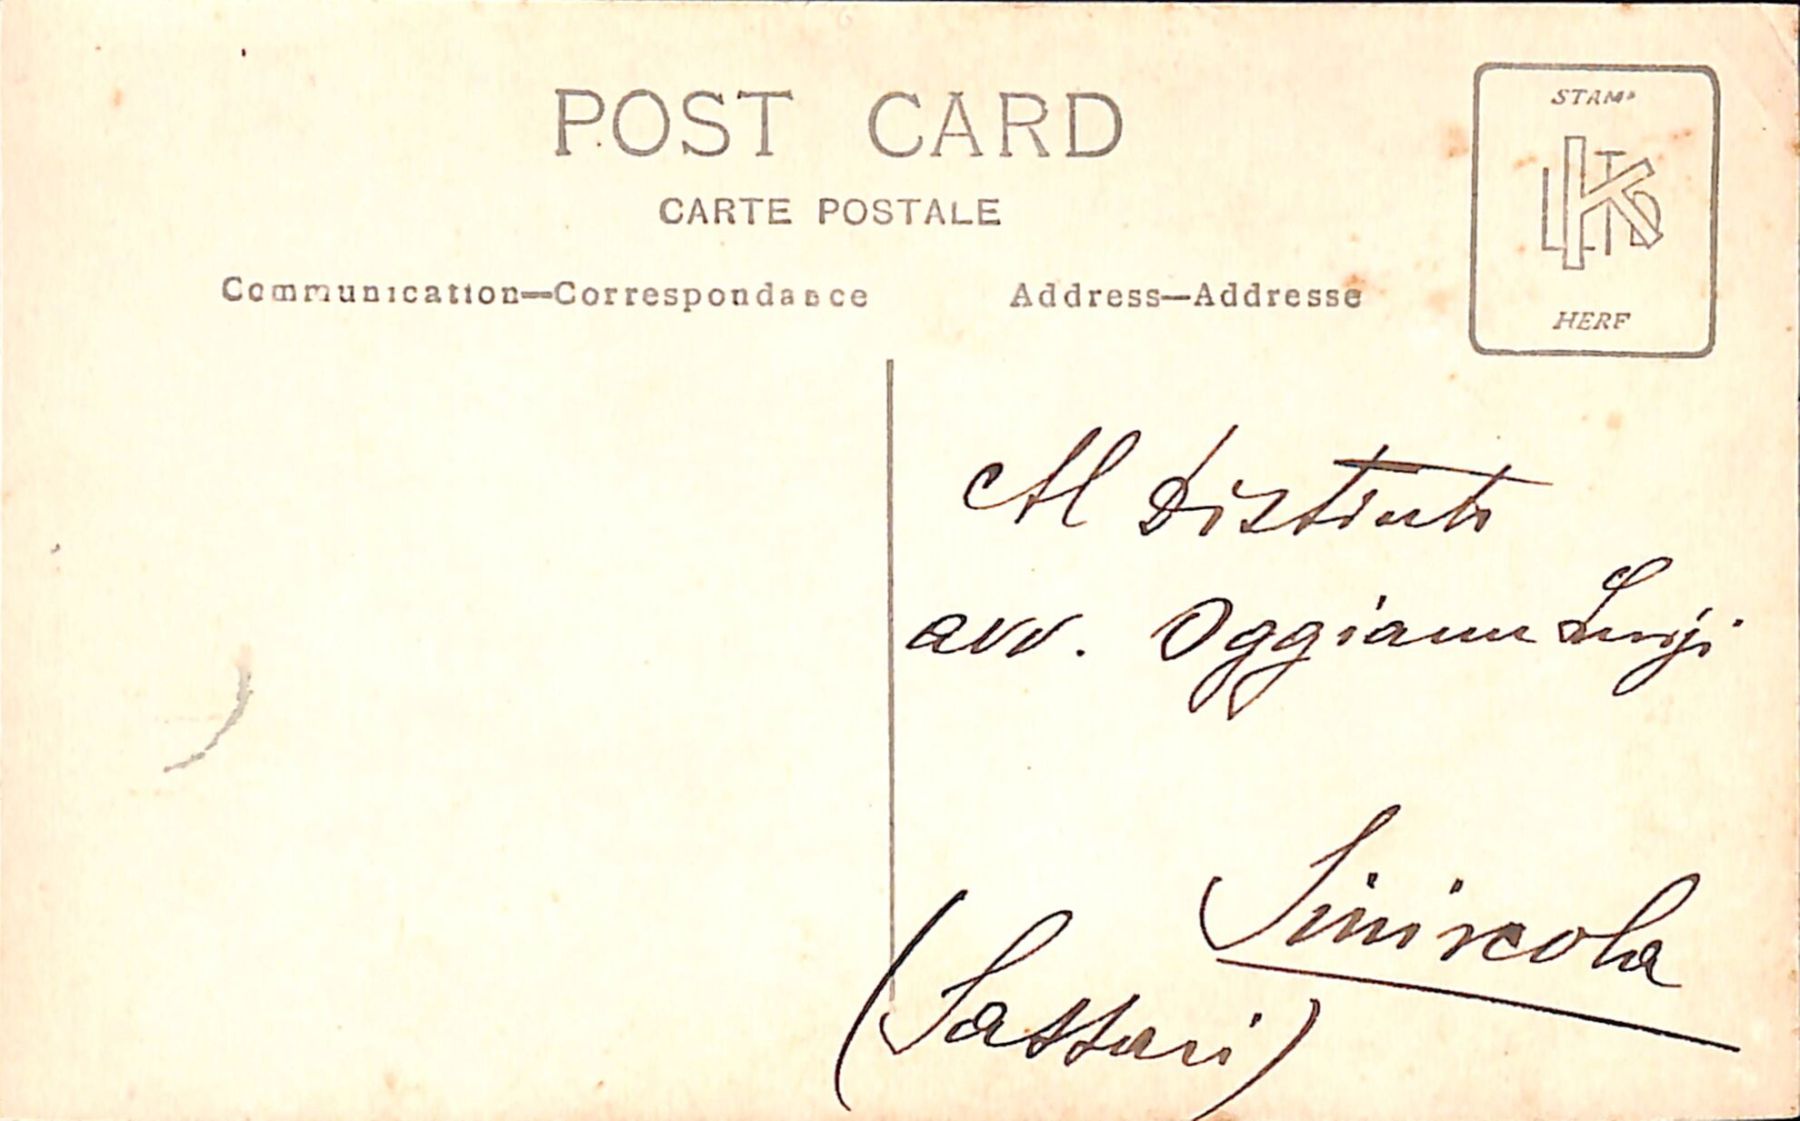 POST CARD
CARTE POSTALE
Communication—Correspondance
Address—Addresse
STAMP
K LTD
HERE
Al Distinto
avv. Oggianu Luigi
Siniscola
(Sassari)